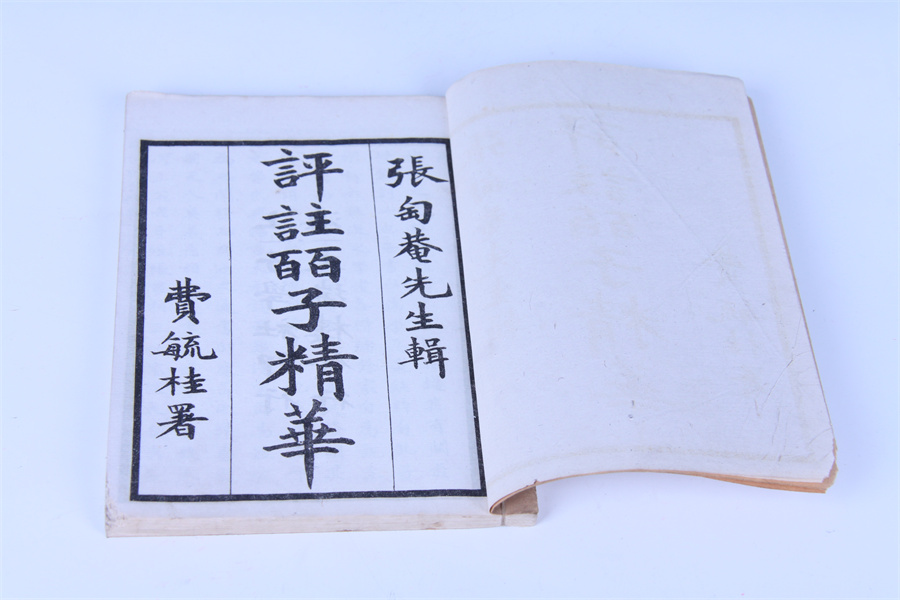 張匋菴先生輯
評註皕子精華
費毓桂署